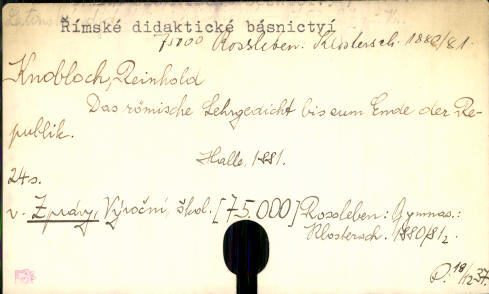 Římské didaktické básnictví
75000 Rossleben. Klostersch. 1880/81.
Knobloch, Reinhold
Das römische Lehrgedicht bis zum Ende der Re-
publik.
Halle, 1881.
24 s.
v. Zprávy, Výroční, škol. [75.000] Rossleben: Gymnas.:
Klostersch. 1880/81.